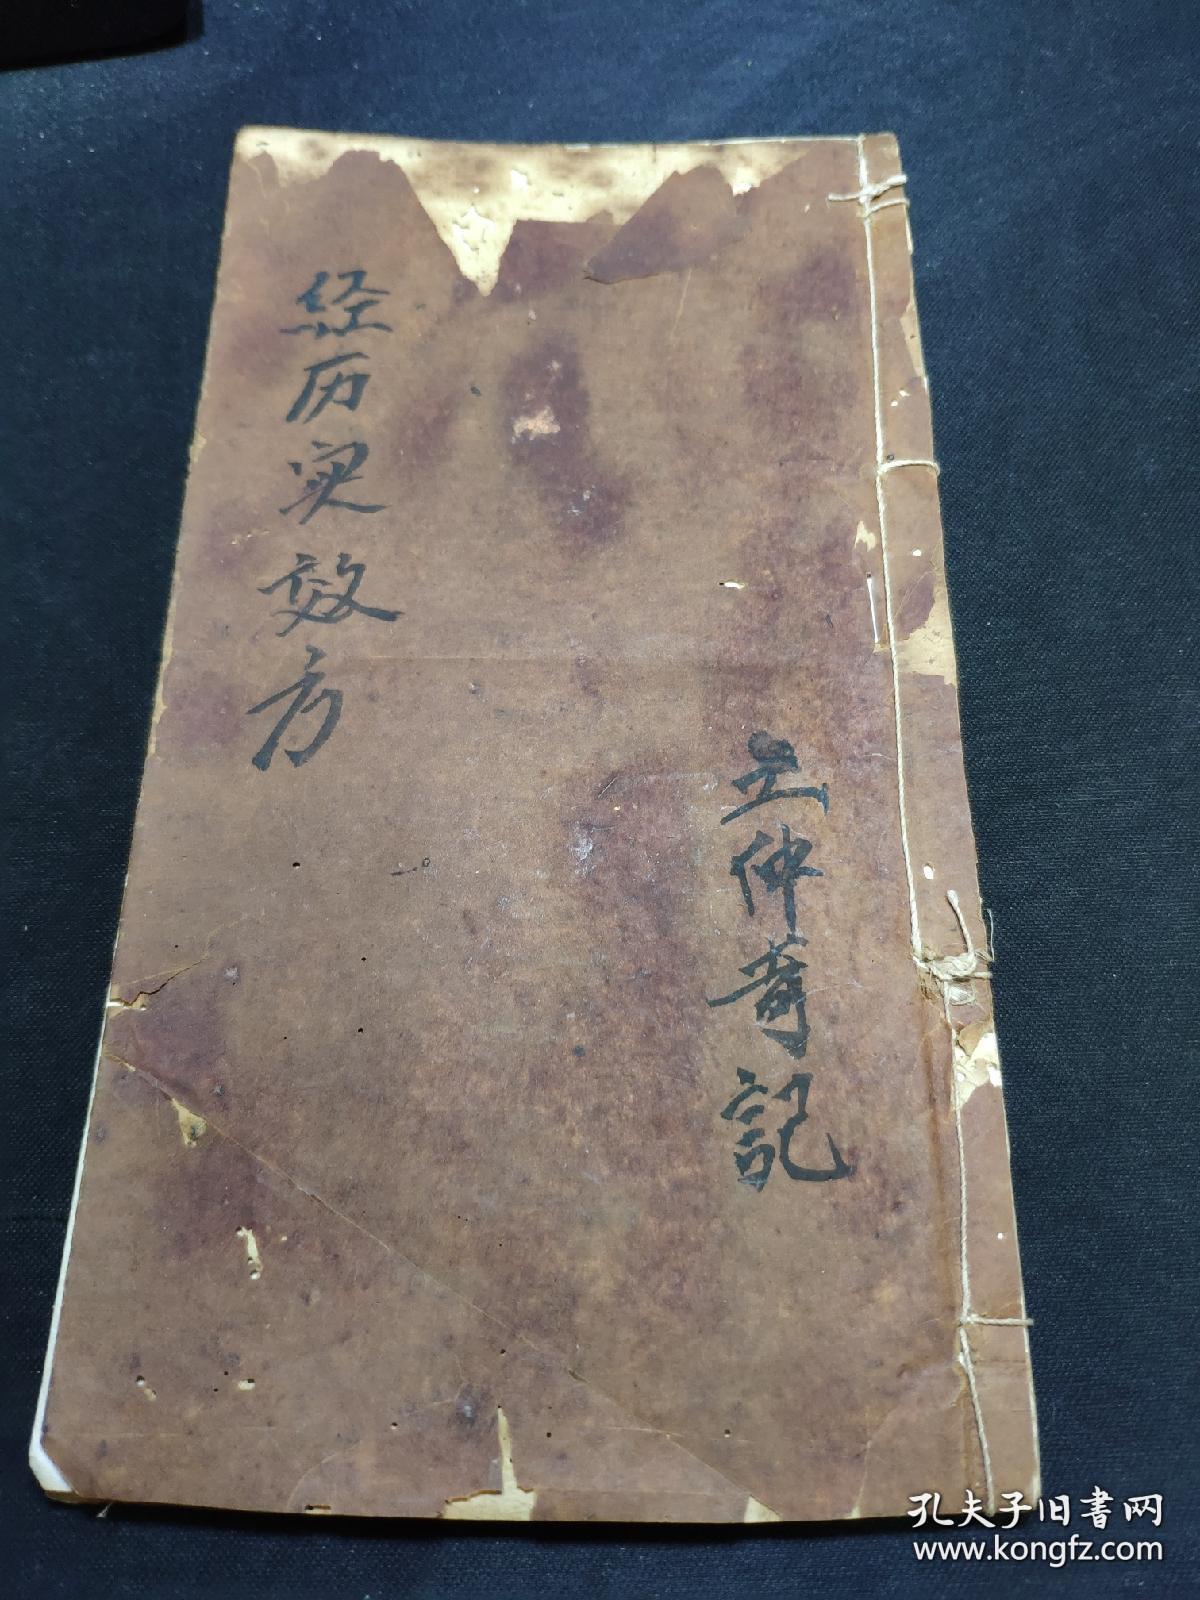 经历实效方
立仲苟記
孔夫子旧書网
www.kongfz.com